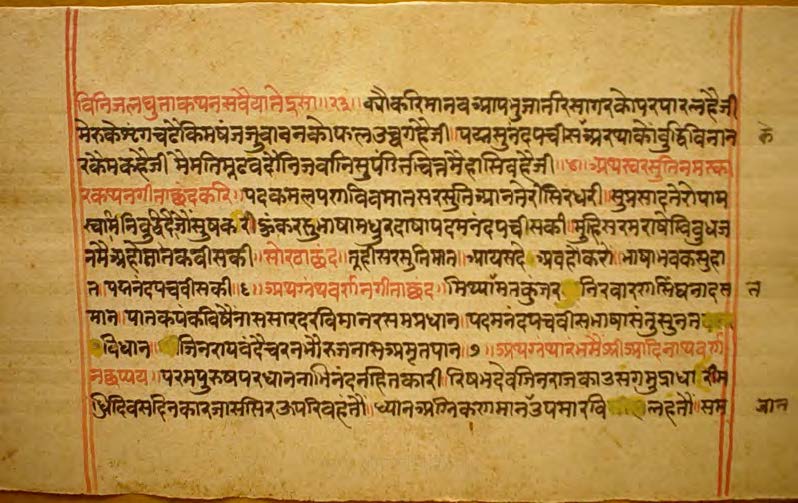 विनिजलघुताकथनसवैयातेईसा॥२३॥ क्यौकरिमानवआपभुजानरिसागरकोपरपारलहैजी
मेरुकेश्टंगचढैकिमषंजजुबावनकोफलउच्चगहैजी॥पद्मसुनंदपचीसीअरथाकोबुद्धिविनान
रकेमकहैजी मेमतिमूढवदौनिजवानिसुपंगितचित्तमैहासिवहैजी॥५॥अथस्वरसुतिनमस्का
रकथनगीताछंदकरि॥पदकमलपणविवमातसरसुतिध्यानतेरोसिरधरी॥सुप्रसादतेरोपाम
स्वामनिबुद्धिदेजौसुषकरी॥हुंकरसुभाषामधुरदाषापदमनंदपचीसकी॥मुहिसरमराषेविबुधज
नमैअहोमातकवीसकी॥सोरठाछंद॥तूहीसरसुतिमान॥आयसदेअवहोकरो॥भाषाभवकसुहा
न॥पद्मनंदपचवीसकी॥६॥अथग्रंथवर्णनगीताछंद॥मिथ्यामतकुजरनिरवारणसिंघनादस
मान॥पातकपंकविषैनाससारदरविमानरसमप्रधान॥पदमनंदपचवीसभाषासंतुसुनत
विधान जिनरायवंदैचरनभौरुजनासअमृतपान॥७॥अथग्रंथारंभमैश्रीआदिनाथवर्ण
नछप्पय॥परमपुरुषपरधाननाभिनंदनहितकारी॥रिषभदेवजिनराजकाउसगमुद्राधारी॥म
धिदिवसदिनकारजाससिरऊपरिवहंतौ॥ध्यानअग्निकणमानउपमारविलहंतौ॥सम
के
न
जान